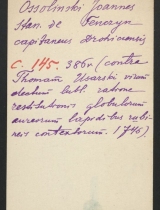 Ossoliński Joannes
Stan. de Tenczyn
capitaneus drohiciensis
C. 145. 386r (contra
Thomam Usarski virum
electum lubl. ratione
restitutionis globulorum
aureorum lapidibus rubi-
neis contextorum. 1745)